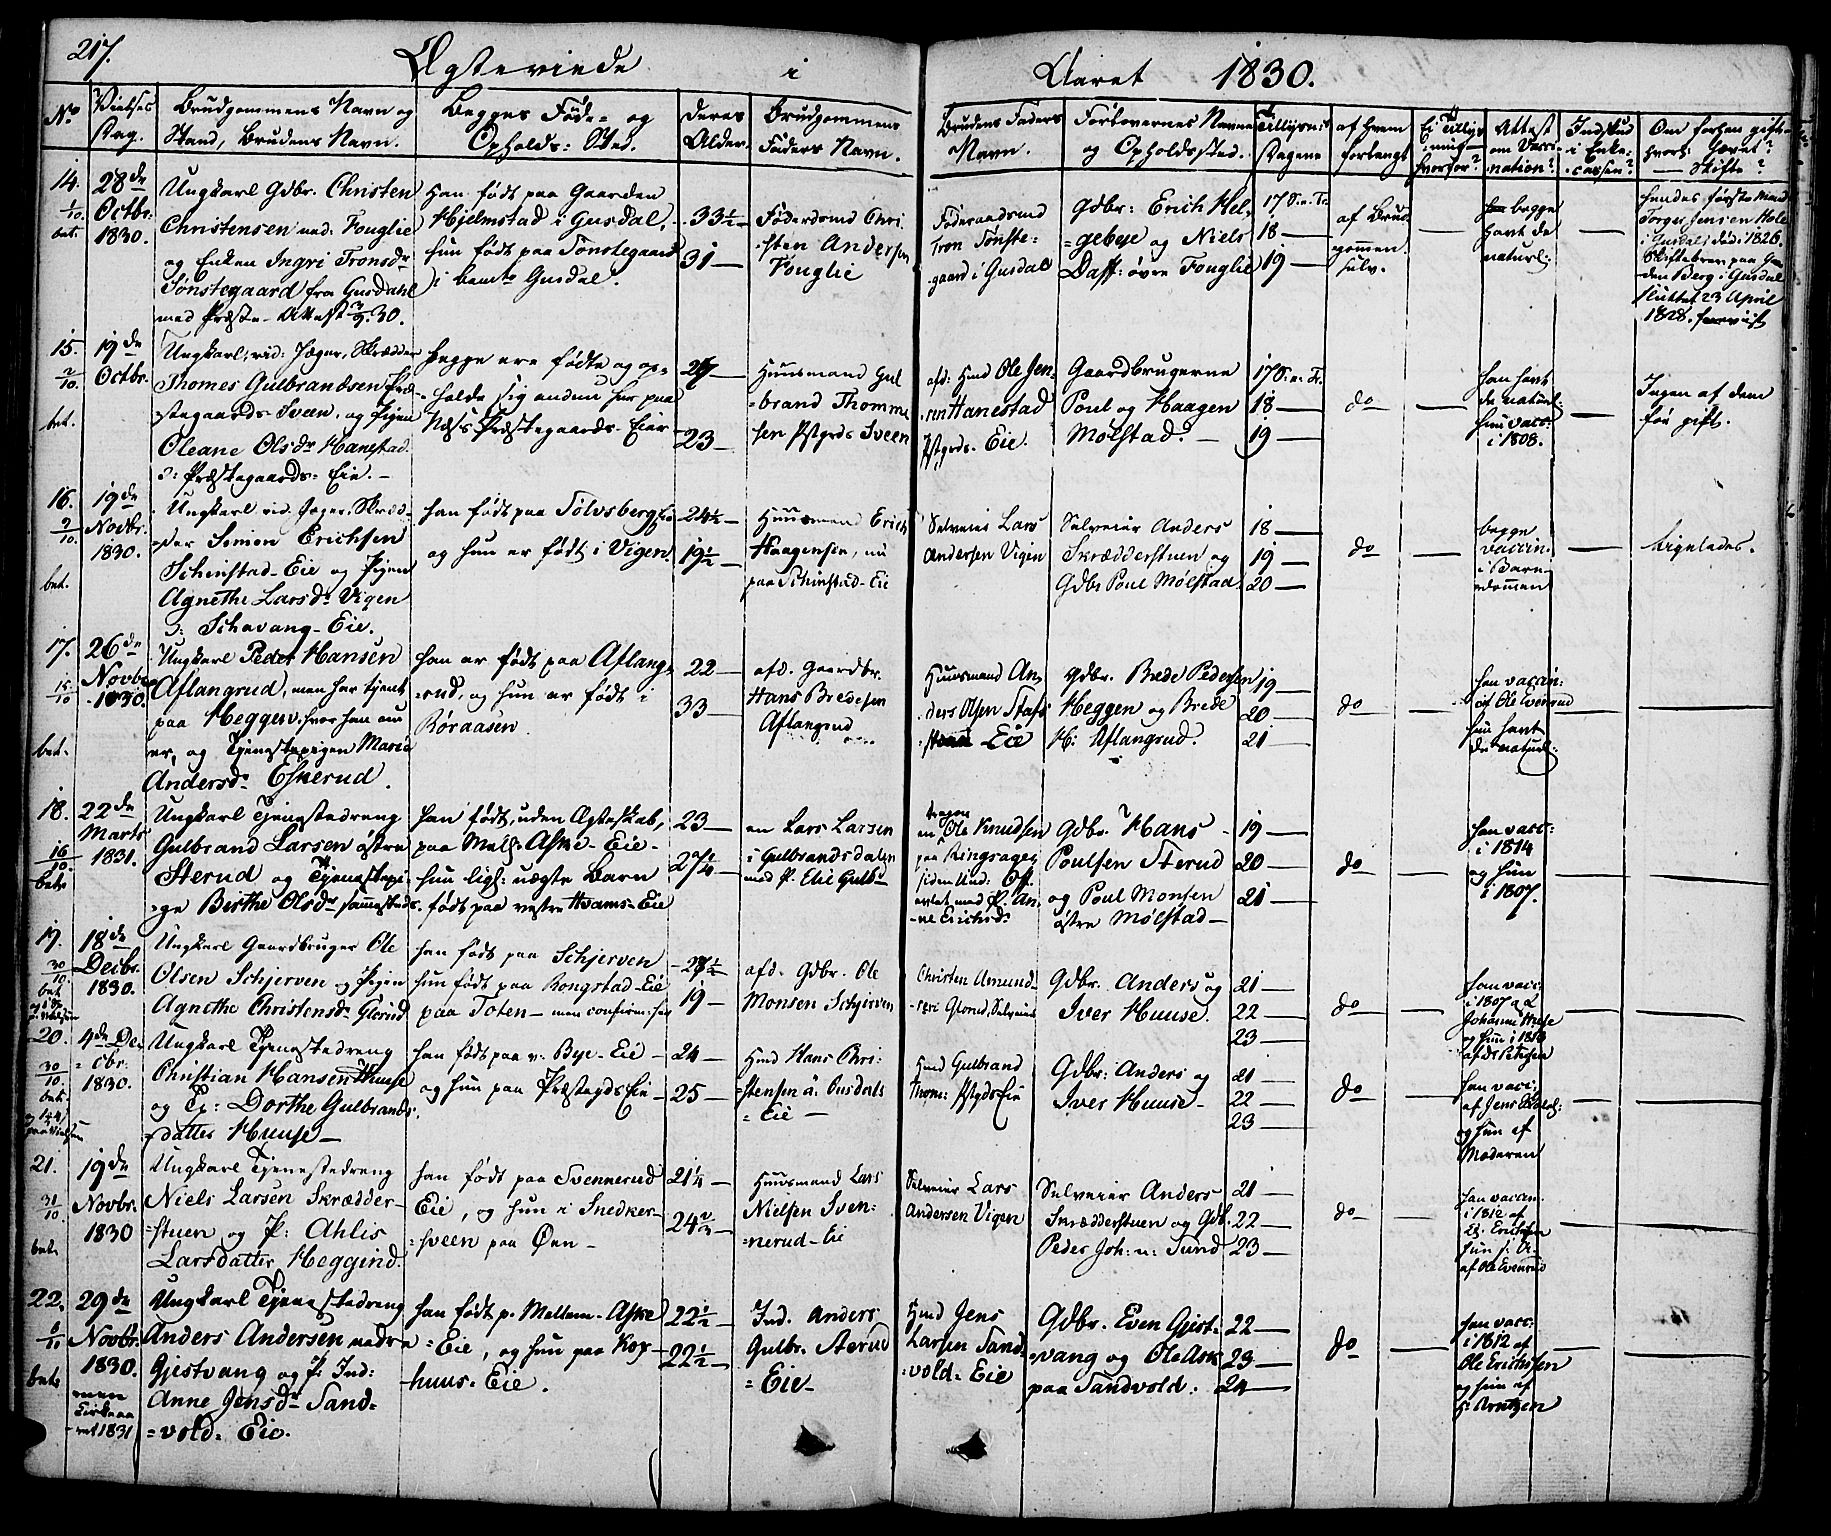 217.
Ægteviede i Aaret 1830.
No
Vielses Dag.
Brudgommens Navn og Stand, Brudens Navn.
Begges Føde- og Opholds-Sted.
Deres Alder.
Brudgommens Faders Navn.
Brudens Faders Navn.
Forlovernes Navne og Opholdssted.
Tillysnis Dagene
af hvem forlangt
Ei Tillyst hvorfor?
Attest om Vacci-nation?
Indskud i Enke-cassen?
Om forhen gift- hvort. hævet? — Skifte?
14.
1/10
bet.
28de
Octbr.
1830.
Ungkarl Gdbr. Christen
Christensen ned: Fouglie
og Enken Ingri Tronsdr
Tønstegaard fra Gusdahl
med Præste-Attest 30.
Han født paa Gaarden
Hjelmstad i Gusdal,
hun født paa Tønstegaard
i bemte Gusdal.
33½ —
31 —
Føderdsmd Chri-
sten Andersen
Fouglie
Føderaadsmd
Tron Tønste-
gaard i Gusdal
Gdbr: Erich Hel-
=gebye og Niels
Daff: øvre Fouglie
17 S. e. Tr.
18 —
19 —
af Brud-
gommen
selv.
begge
havt de
naturl:
—
hendes første Mand
Torger Jensen Hole
i Gusdal død i 1826.
Skiftebrev paa Gaar-
den Berg i Gusdal
sluttet 23 April
1828. forevist
15.
2/10
bet.
19de
Octbr.
Ungkarl, rid: Jæger, Skrædder
Thomes Gulbrandsen Præ-
=stegaards-Sveen, og Pigen
Oleane Olsdr Hanestad
Præstegaards-Eie.-
begge ere fødte og op-
holde sig endnu her paa
Næss Præstegaards-Eier
27 —
23 —
Huusmand Gul
=brand Thomme
sen Pstgrds Sveen
afd: Hmd Ole Jen-
sen Hanestad
Pstgrds. Eie.
Gaardbrugerne
Poul og Haagen
Mølstad. —
17 S. e. Tr.
18 —
19 —
do
—
han havt
de naturl:
hun vacc.
i 1808.
—
Ingen af dem
før gift.
16.
9/10
bet.
19de
Novbr.
1830.
Ungkarl rid. Jæger, Skræd-
=der Simon Erichsen
Schinstad-Eie og Pigen
Agnethe Larsdr Vigen
Schavang-Eie.
han født paa Tølvsberg
og hun er født i Vigen
24½ —
19½ —
Huusmand Erich
Haagensen, nu
paa Schinstad-Eie
Selveier Lars
Andersen Vigen
Selveier Anders
Skrædderstuen og
Gdbr Poul Mølstad
18 —
19 —
20 —
do
—
begge
vaccin.
i Barn-
dommen
—
ligeledes.
17.
15/10
bet.
26de
Novbr
1830.
Ungkarl Peder Hansen
Aflangrud, men har tjent
paa Heggen, hvor han nu
er, og Tjenestepigen Maria
Andersdr Esnerud.
han er født paa Aflang-
=rud, og hun er født i
Røraasen
22 —
33 —
afd. Gaardbr.
Hans Bredesen
Aflangrud
Huusmand An-
ders Olsen Stafs-
Eie
Gdbr. Brede Pedersen
Heggen og Brede
H: Aflangrud.
19 —
20 —
21 —
do
—
han vaccin:
af Ole Evenrud
hun havt
de naturl:
18.
16/10
bet.
22de
Marts
1831.
Ungkarl Tjenestedreng
Gulbrand Larsen østre
Sterud og Tjenestepi-
=ge Birthe Olsdr sammesteds
han født, uden Ægteskab,
paa Mell: Aske-Eie-
hun ligl: uægte Barn
født paa vestre Hvams-Eie
23 —
27¼ —
en Lars Larsen
i Gulbrandsdalen
med P. Elie Gulb-
dragon
en Ole Knudsen
paa Ringsager
avlet med P. An-
ne Erichsdr
Gdbr. Hans
Poulsen Sterud
og Poul Monsen
østre Mølstad —
19 —
20 —
21 —
do
—
han vacc:
i 1814
og hun
i 1807.
—
19.
30/10
bet
18de
Decbr.
1830.
Ungkarl Gaardbruger Ole
Olsen Schjerven og Pigen
Agnethe Christensdr Glorud
han født paa Schjerven
hun født paa Rongstad-Eie
paa Toten — men confirm: her
27½ —
19 —
afd. Gdbr. Ole
Monsen Schjerven
Christen Amund-
=sen Glorud, Selveier
Gdbr. Anders og
Iver Huuse.
21 —
22 —
23 —
do
—
han vacc:
i 1807 af
Johanne Huse
og hun i 1816
af dr Petersen
—
20.
30/10
bet.
4de De-
=cbr.
1830.
Ungkarl Tjenestedreng
Christian Hansen Huuse
og Tp: Dorthe Gulbrands-
=datter Huuse —
han født paa v. Bye-Eie —
og hun paa PræstegdsEie —
24 —
25 —
Hmd Hans Chri-
=stensen
=Eie —
Hmd Gulbrand
Thom: PstgdsEie
Gdbr: Anders og
Iver Huuse —
21 —
22 —
23 —
do
—
han vacc:
af Jens
og hun af
Moderen
—
21.
31/10
bet.
19de
Novbr.
1830
Ungkarl Tjenestedreng
Niels Larsen Skrædder-
=stuen og P: Ahlis
Larsdatter Heggind.
han født paa Svennerud
Eie, og hun i Snedker-
=sveen paa Øen —
21¼ —
24⅔ —
Huusmand Lars
Nielsen Sven-
=nerud-Eie
Selveier Lars
Andersen Vigen
Selveier Anders
Skrædderstuen og Gdb.
Peder Joh: n: Sund
21 —
22 —
23 —
do
—
han vaccin.
i 1812 af
El. Erichsen
hun s: A.
af Ole Evenrud
—
22.
6/10
bet.
29de
Novbr.
1830.
men
Kirkeaa-
ret 1831
Ungkarl Tjenestedreng
Anders Andersen nedre
Gjestvang og P. Ind:
Anne Jensdr Sand-
=vold-Eie.
han født p. Mellem-Aske
=Eie, og hun paa Kop-
huus-Eie.
22½ —
22½ —
Ind. Anders
Gulbr. Sterud
=Eie —
Hmd Jens
Larsen Sand
=vold-Eie
Gdbr. Even Gjest-
=vang og Ole Ask
paa Sandvold.
22 —
23 —
24 —
do
—
han vacc:
i 1812 af
Ole Erichsen
og hun af
H: Arntzen
—